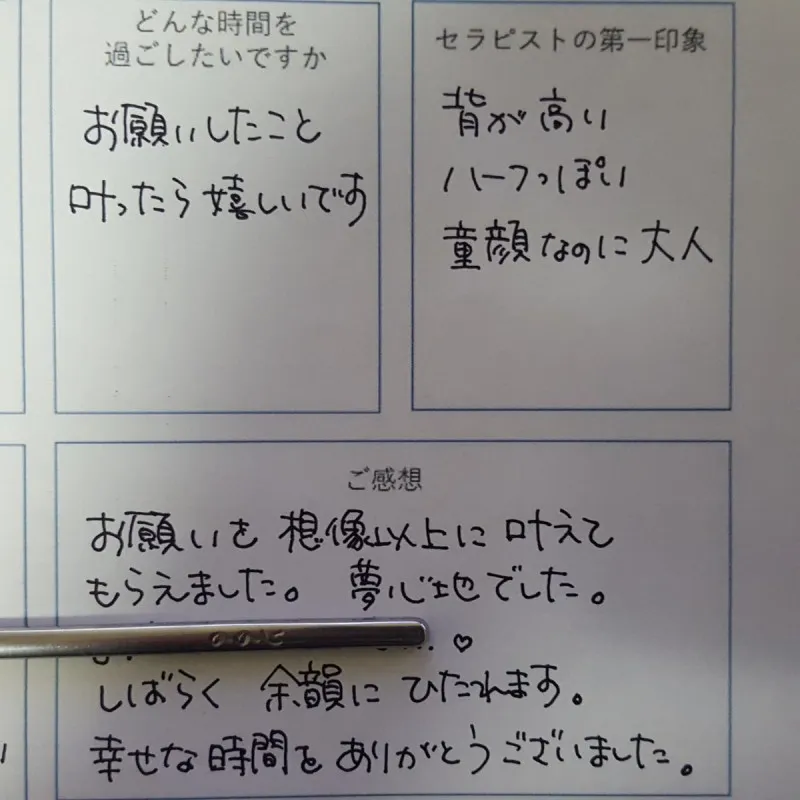 どんな時間を
過ごしたいですか
お願いしたこと
叶ったら嬉しいです
セラピストの第一印象
背が高い
ハーフっぽい
童顔なのに大人
ご感想
お願いを想像以上に叶えて
もらえました。 夢心地でした。
♡
しばらく 余韻に ひたれます。
幸せな時間をありがとうございました。